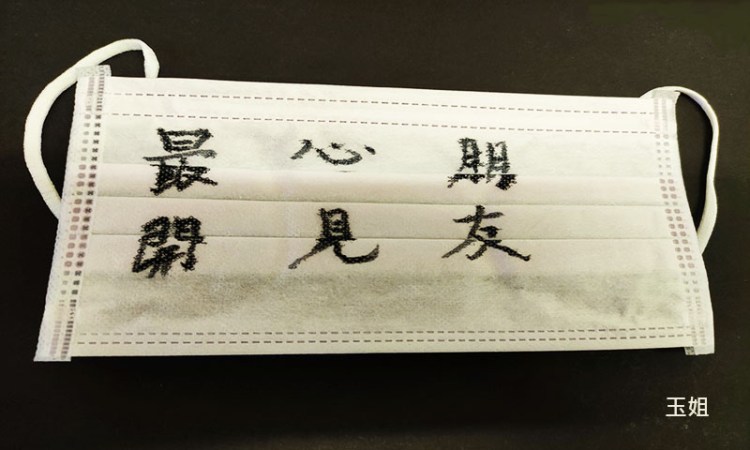 最開
心見
朋友
玉姐